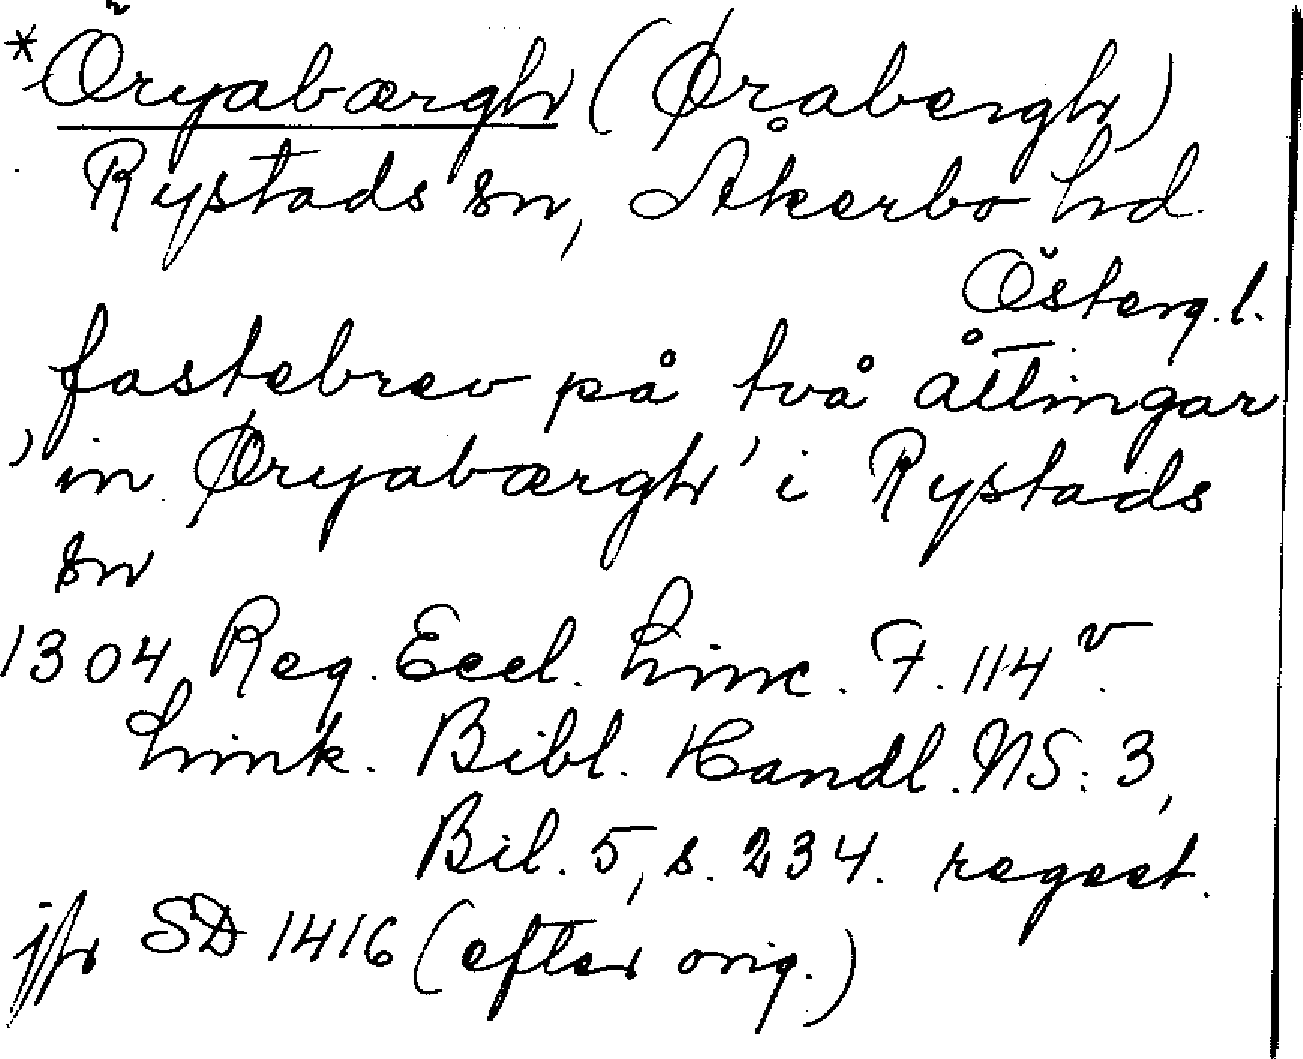 *Öryabærgh (Ørabergh)
Rystads sn, Åkerbo hd.
Österg.l.
fastebrev på två åttingar
'in Øryabærgh' i Rystads
sn
1304 Reg. Eccl. Linc. F. 114v.
Link. Bibl. Handl. NS: 3,
Bil. 5, s. 234. regest.
jfr SD 1416 (efter orig.)